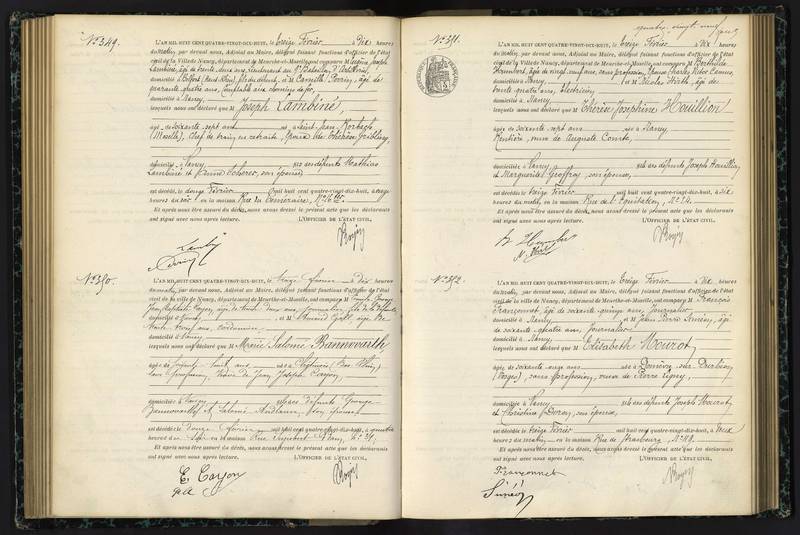 N° 349.
L'AN MIL HUIT CENT QUATRE-VINGT-DIX-HUIT, le treize Février à dix heures
du matin, par devant nous, Adjoint au Maire, délégué faisant fonctions d'officier de l'état
civil de la Ville de Nancy, département de Meurthe-et-Moselle, ont comparu M Joseph
Lambiné, âgé de trente deux ans, Lieutenant au Bataillon d'Artillerie,
domicilié à Belfort fils du défunt, et M Camille Perrin, âgé de
quarante quatre ans, Comptable aux chemins de fer,
domicilié à Nancy
lesquels nous ont déclaré que M Joseph Lambiné
âgé de soixante sept ans né à Saint-Jean
(Moselle), Chef de train en retraite, époux de Thérèse
domicilié à Nancy fils des défunts Mathias
Lambiné et Scherer, son épouse
est décédé le douze Février mil huit cent quatre-vingt-dix-huit, à onze
heures du soir en la maison Rue N° 16 ter.
Et après nous être assuré du décès, nous avons dressé le présent acte que les déclarants
ont signé avec nous après lecture. L'OFFICIER DE L'ÉTAT CIVIL,
N° 350.
L'AN MIL HUIT CENT QUATRE-VINGT-DIX-HUIT, le treize Février à dix heures
du matin, par devant nous, Adjoint au Maire, délégué faisant fonctions d'officier de l'état
civil de la ville de Nancy, département de Meurthe-et-Moselle, ont comparu M
Jean Baptiste Cayon, âgé de trente deux ans, fils de la défunte
domicilié à Nancy et M Armand âgé de
trente neuf ans, cordonnier
domicilié à Nancy
lesquels nous ont déclaré que M Marie Salomé Bannwarth
âgée de soixante huit ans née à (Bas-Rhin)
sans profession, veuve de Jean Joseph Cayon,
domiciliée à Nancy fille des défunts George
Bannwarth et Salomé son épouse
est décédée le douze février mil huit cent quatre-vingt-dix-huit, à quatre
heures du soir en la maison Rue N° 31.
Et après nous être assuré du décès, nous avons dressé le présent acte que les déclarants
ont signé avec nous après lecture. L'OFFICIER DE L'ÉTAT CIVIL,
E. Cayon
quatre-vingt neuf
N° 351.
L'AN MIL HUIT CENT QUATRE-VINGT-DIX-HUIT, le treize Février à dix heures
du matin, par devant nous, Adjoint au Maire, délégué faisant fonctions d'officier de l'état
civil de la Ville de Nancy, département de Meurthe-et-Moselle, ont comparu M Berthilde
Humbert, âgée de vingt neuf ans, sans profession, épouse Charles Victor Camus,
domiciliée à Nancy, et M Nicolas Hirtz, âgé de
trente quatre ans, électricien
domicilié à Nancy
lesquels nous ont déclaré que M Thérèse Joséphine Houillion
âgée de soixante sept ans née à Nancy
Rentière, veuve de Auguste Comte,
domiciliée à Nancy fille des défunts Joseph Houillion
et Marguerite Geoffroy, son épouse,
est décédée le treize Février mil huit cent quatre-vingt-dix-huit, à six
heures du matin, en la maison Rue de l'Équitation, N° 24.
Et après nous être assuré du décès, nous avons dressé le présent acte que les déclarants
ont signé avec nous après lecture. L'OFFICIER DE L'ÉTAT CIVIL,
N° 352.
L'AN MIL HUIT CENT QUATRE-VINGT-DIX-HUIT, le treize Février à dix heures
du matin, par devant nous, Adjoint au Maire, délégué faisant fonctions d'officier de l'état
civil de la Ville de Nancy, département de Meurthe-et-Moselle, ont comparu M François
Françonnet, âgé de soixante quinze ans, Journalier
domicilié à Nancy et M Jean Pierre Siméon, âgé
de soixante quatre ans, Journalier
domicilié à Nancy
lesquels nous ont déclaré que M Elisabeth Mourot
âgée de soixante onze ans née à Domèvre sur Durbion
(Vosges), sans profession, veuve de Pierre Signy,
domiciliée à Nancy fille des défunts Joseph Mourot
et Christine Duron, son épouse,
est décédée le treize Février mil huit cent quatre-vingt-dix-huit, à deux
heures du matin, en la maison Rue de Strasbourg, N° 119.
Et après nous être assuré du décès, nous avons dressé le présent acte que les déclarants
ont signé avec nous après lecture. L'OFFICIER DE L'ÉTAT CIVIL,
Françonnet
Siméon